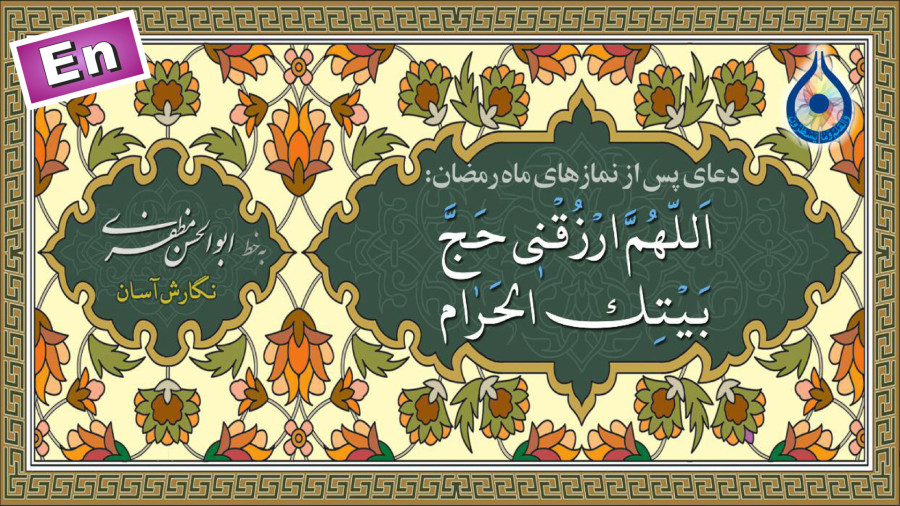 En
دعای پس از نمازهای ماه رمضان:
اَللّهُمَّ ارْزُقْنى حَجَّ
بَيْتِكَ الحَرٰام
به خط ابوالحسن مظفری
نگارش آسان